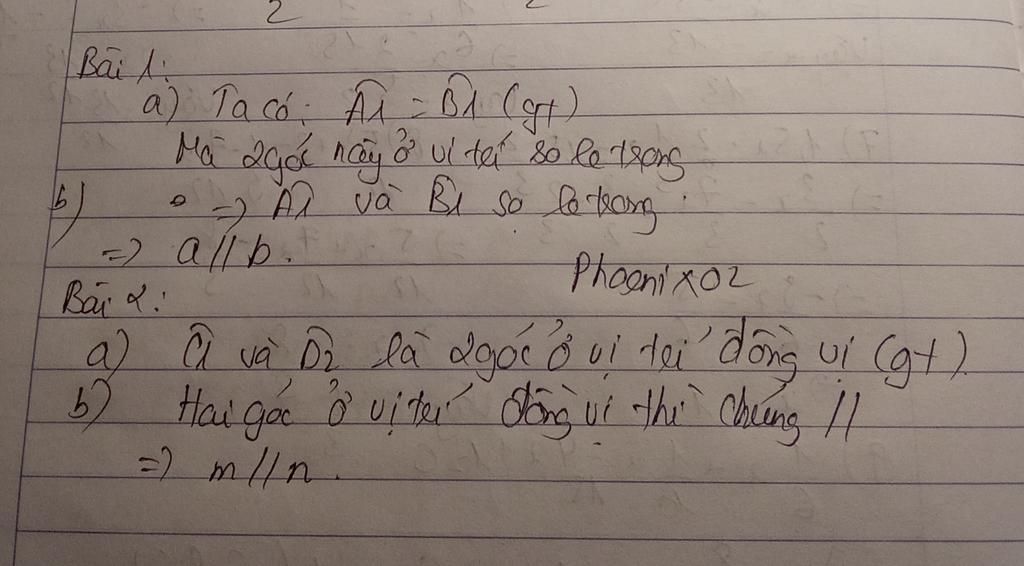 2 2
Bài 1:
a) Ta có: Â1 = B̂1 (gt)
Mà 2 góc này ở vị trí so le trong
b) => Â1 và B̂1 so le trong
=> a // b.
Phoenix02
Bài 2:
a) Ĉ1 và D̂2 là 2 góc ở vị trí đồng vị (gt)
b) Hai góc ở vị trí đồng vị thì chúng //
=> m // n.